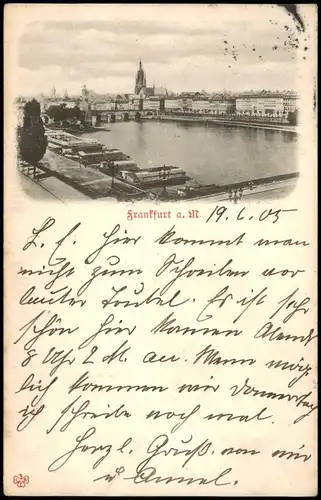 Frankfurt a. M. 19.6.05
L. E. Hier kommt man
nicht zum Schreiben vor
lauter Trubel. Es ist sehr
schön hier kamen Abends
8 Uhr 2 M. an. Wenn mög-
lich kommen wir Donnerstag
ich schreibe noch mal.
Herzl. Gruß von mir
u